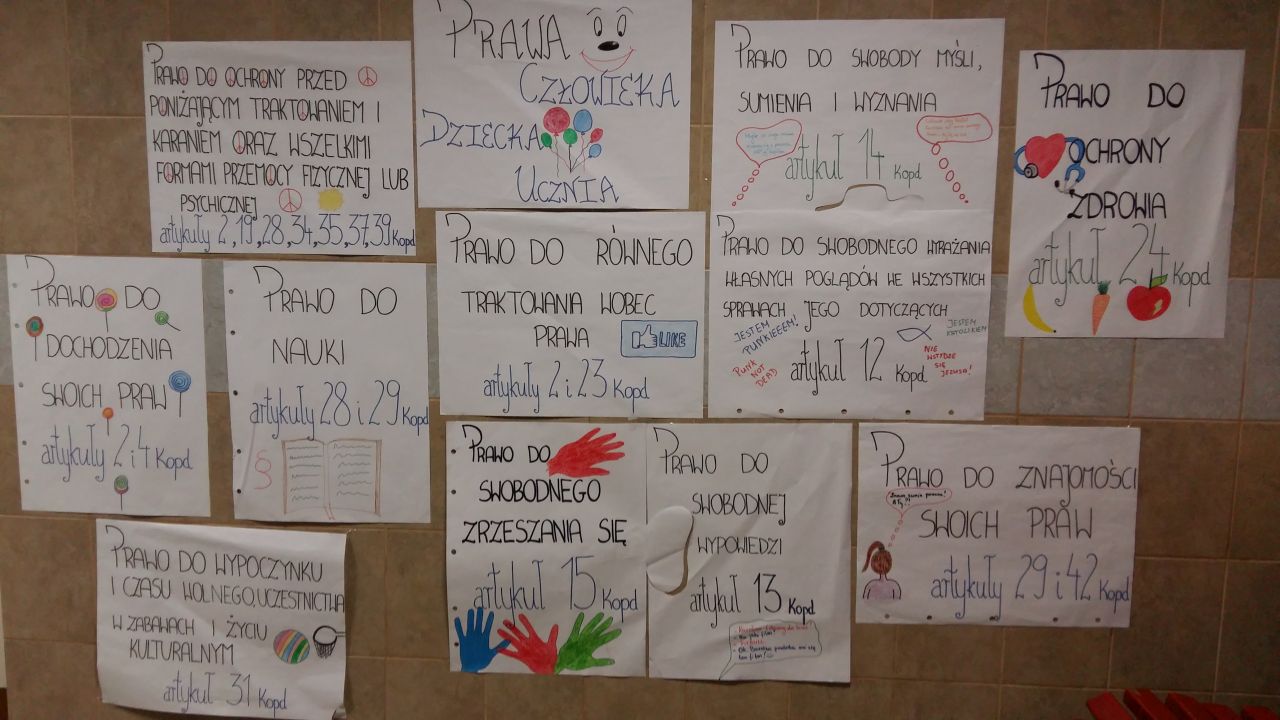 PRAWO DO OCHRONY PRZED
PONIŻAJĄCYM TRAKTOWANIEM I
KARANIEM ORAZ WSZELKIMI
FORMAMI PRZEMOCY FIZYCZNEJ LUB
PSYCHICZNEJ
artykuły 2,19,28,34,35,37,39 Kopd
PRAWA
CZŁOWIEKA
DZIECKA
UCZNIA
PRAWO DO SWOBODY MYŚLI,
SUMIENIA I WYZNANIA
artykuł 14 Kopd
PRAWO DO
OCHRONY
ZDROWIA
artykuł 24 Kopd
PRAWO DO
DOCHODZENIA
SWOICH PRAW
artykuły 2 i 4 Kopd
PRAWO DO
NAUKI
artykuły 28 i 29 Kopd
§
PRAWO DO RÓWNEGO
TRAKTOWANIA WOBEC
PRAWA
LIKE
artykuły 2 i 23 Kopd
PRAWO DO SWOBODNEGO WYRAŻANIA
WŁASNYCH POGLĄDÓW WE WSZYSTKICH
SPRAWACH JEGO DOTYCZĄCYCH
JESTEM
PUNKIEEEM!
JESTEM
KATOLIKIEM
PUNK
NOT
DEAD
artykuł 12 Kopd
NIE
WSTYDZĘ
SIĘ
JEZUSA!
PRAWO DO WYPOCZYNKU
I CZASU WOLNEGO, UCZESTNICTWA
W ZABAWACH I ŻYCIU
KULTURALNYM
artykuł 31 Kopd
PRAWO DO
SWOBODNEGO
ZRZESZANIA SIĘ
artykuł 15 Kopd
PRAWO DO
SWOBODNEJ
WYPOWIEDZI
artykuł 13 Kopd
PRAWO DO ZNAJOMOŚCI
Znam swoje prawa!
A Ty?!
SWOICH PRAW
artykuły 29 i 42 Kopd